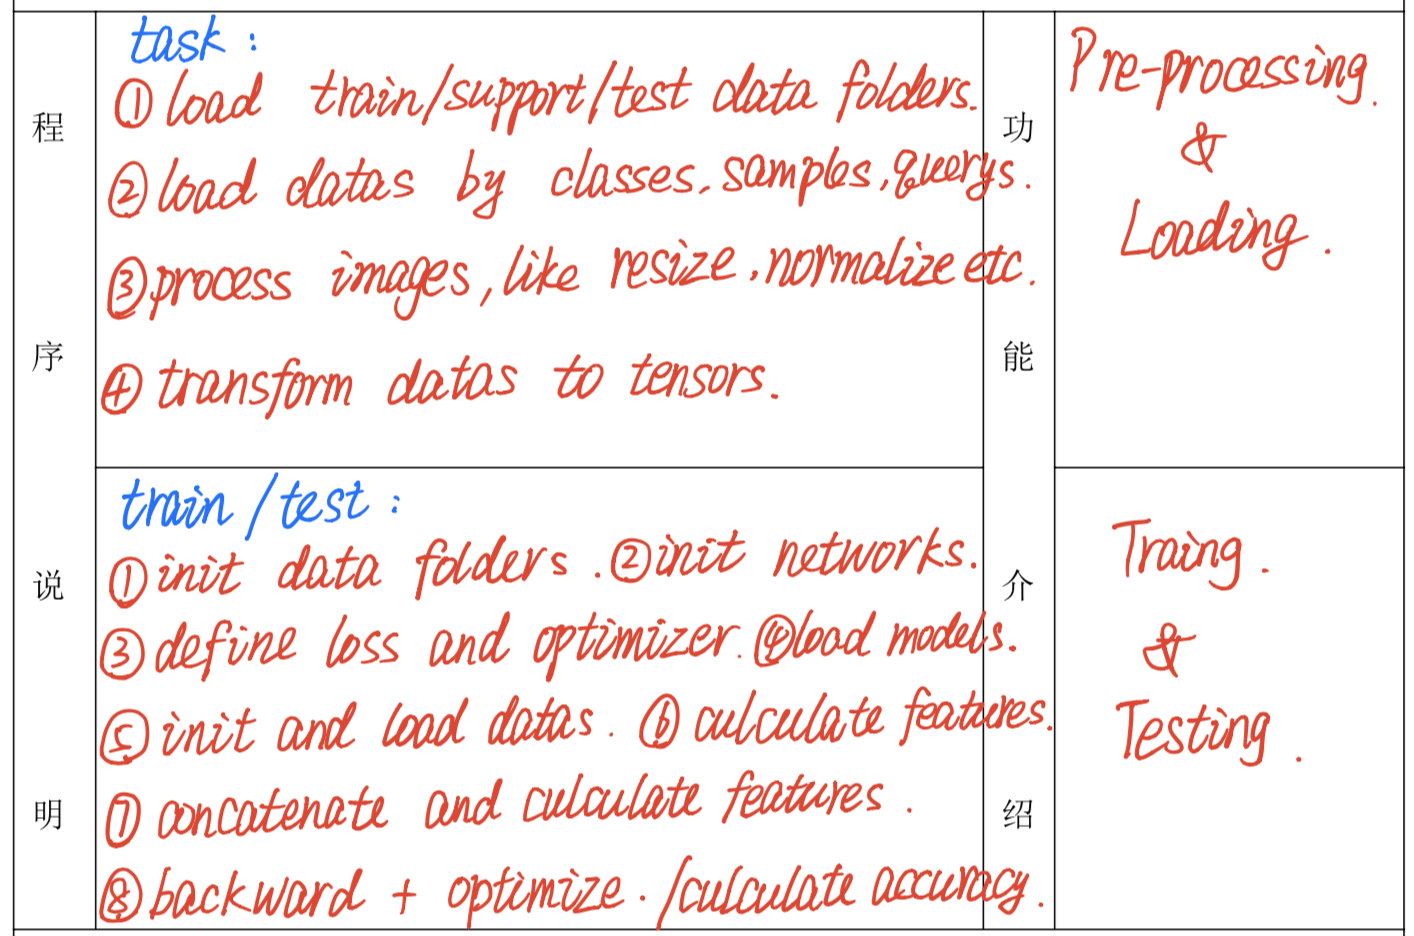 程序说明
task:
①load train/support/test data folders.
②load datas by classes,samples,querys.
③process images,like resize,normalize etc.
④transform datas to tensors.
功能介绍
Pre-processing.
&
Loading.
train/test:
①init data folders.②init networks.
③define loss and optimizer.④load models.
⑤init and load datas.⑥culculate features.
⑦concatenate and culculate features.
⑧backward + optimize./culculate accuracy.
Traing.
&
Testing.